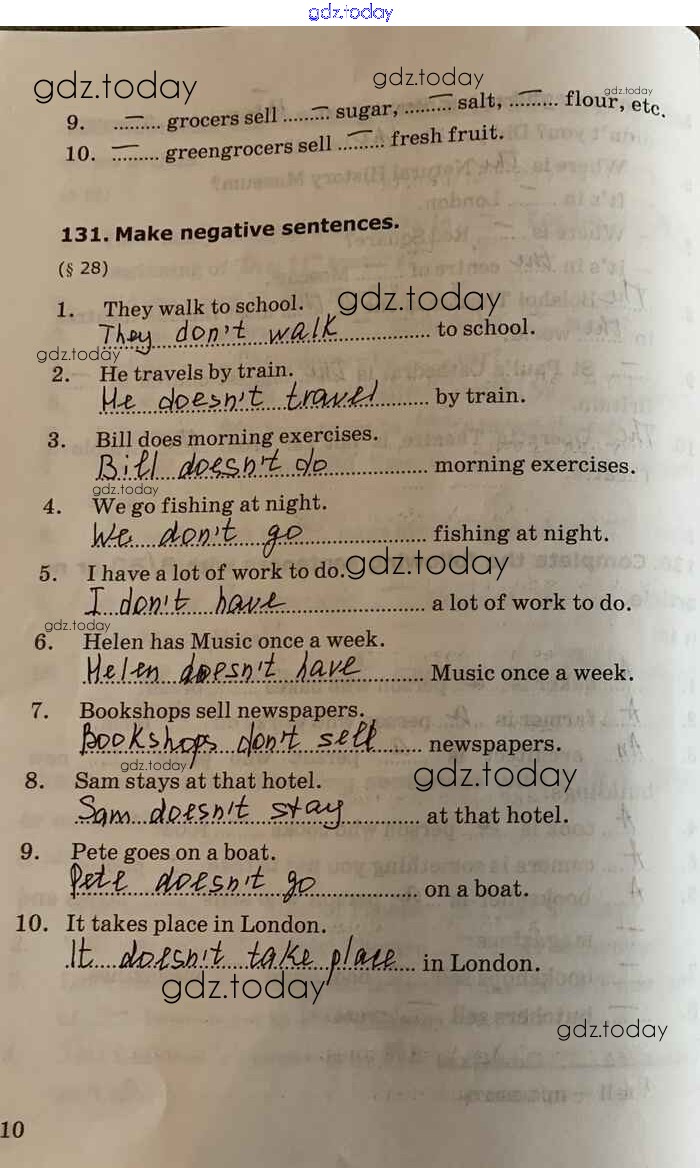 gdz.today
gdz.today
gdz.today
gdz.today
9. ......... grocers sell ......... sugar, ......... salt, ......... flour, etc.
10. ......... greengrocers sell ......... fresh fruit.
131. Make negative sentences.
(§ 28)
1. They walk to school.
gdz.today
They don't walk to school.
gdz.today
2. He travels by train.
He doesn't travel by train.
3. Bill does morning exercises.
Bill doesn't do morning exercises.
gdz.today
4. We go fishing at night.
We don't go fishing at night.
5. I have a lot of work to do.
gdz.today
I don't have a lot of work to do.
gdz.today
6. Helen has Music once a week.
Helen doesn't have Music once a week.
7. Bookshops sell newspapers.
Bookshops don't sell newspapers.
gdz.today
8. Sam stays at that hotel.
gdz.today
Sam doesn't stay at that hotel.
9. Pete goes on a boat.
Pete doesn't go on a boat.
10. It takes place in London.
It doesn't take place in London.
gdz.today
gdz.today
10